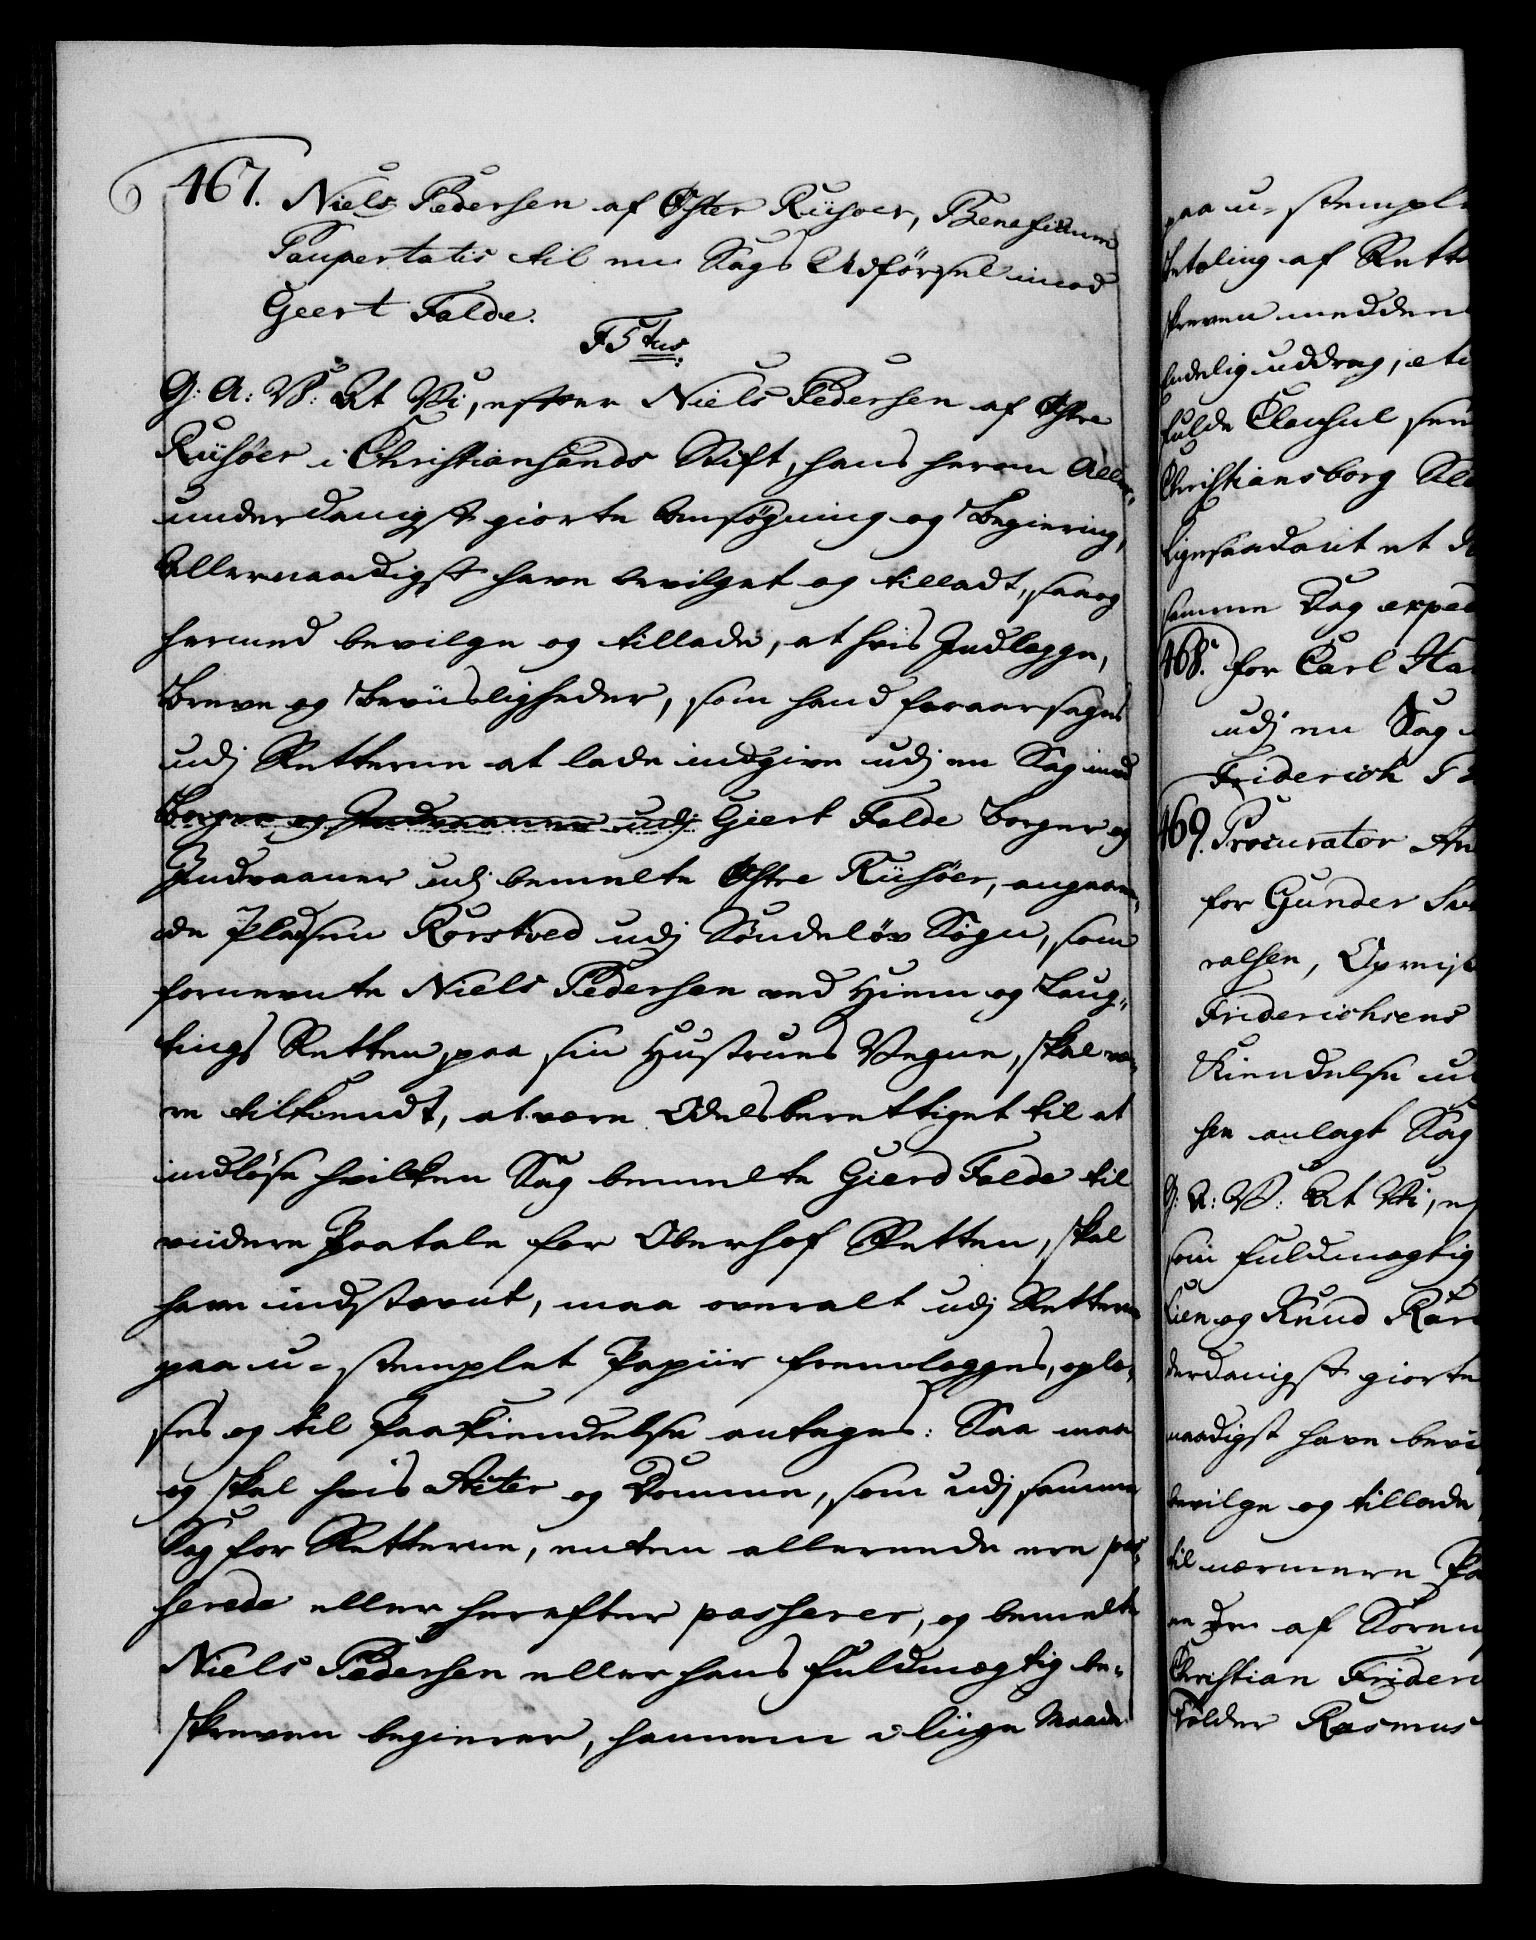 467. Niels Pedersen af Øster Riisøer, Beneficium
Paupertatis til en Sags Udførsel imod
Geert Falde.
F5tus
G: A: V: At Vi, efter Niels Pedersen af Østre
Riisøer i Christiansands Stift, hans herom Aller-
underdanigst giorte Ansøgning og Begiering,
Allernaadigst have bevilget og tilladt, saa og
hermed bevilge og tillade, at hvis Indlegge,
Breve og Beviisligheder, som hand foraarsages
udj Retterne at lade indgive udj en Sag imod
Borger og Indvaaner udj Giert Falde Borger og
Indvaaner udj bemelte Østre Riisøer, angaaen-
de Pladsen Rørsked udj Søndeløv Sogn, som
fornevnte Niels Pedersen ved Hiem og Laug-
tings Retten, paa sin Hustrues Vegne, skal væ-
re tilkiendt, at være Odelsberettiget til at
indløse hvilken Sag bemelte Gierd Falde til
viidere Paatale for Oberhof Retten, skal
have indstævnt, maa overalt udj Retterne
paa u-stemplet Papiir fremlegges, oplæ-
ses og til Paakiendelse antages: Saa maa
og skal hvis Acter og Domme, som udj samme
Sag for Retterne, enten allerede ere pas-
serede eller herefter passerer, og bemelte
Niels Pedersen eller hans fuldmægtig be-
skreven begierer, hannem i liige Maade
paa u-stemple
betaling af Rette
skreven medde
Endelig uddrag,
fulde Clausul
Christiansborg
ligesaadant et
samme Dag exped
468. for Carl Ha
udj en Sag
Friderich
469. Procurator An
for Gunder
ralsen, Opreis
Friderichsens
Kiendelse
sen anlagt Sag
G: A: V: At Vi,
som fuldmægtig
lien og Knud
derdanigst giorte
naadigst have bevi
bevilge og tillade
til nærmere
en den af Søren
Christian Frideri
Rasmus